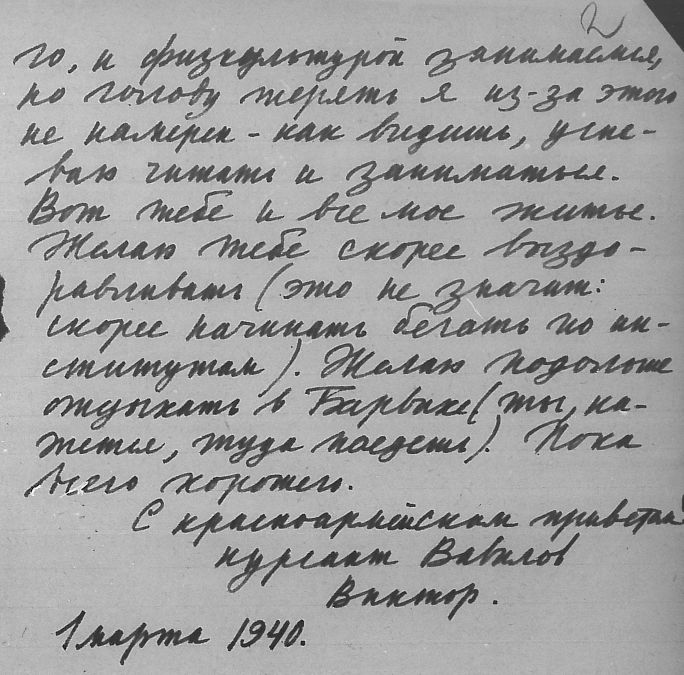 2
го, и физкультурой занимаемся,
но голову терять я из-за этого
не намерен - как видишь, успе-
ваю читать и заниматься.
Вот тебе и все мое житье.
Желаю тебе скорее выздо-
равливать (это не значит:
скорее начинать бегать по ин-
ститутам). Желаю подольше
отдыхать в Барвихе (ты, ка-
жется, туда поедешь). Пока
всего хорошего.
С красноармейским приветом
курсант Вавилов
Виктор.
1 марта 1940.